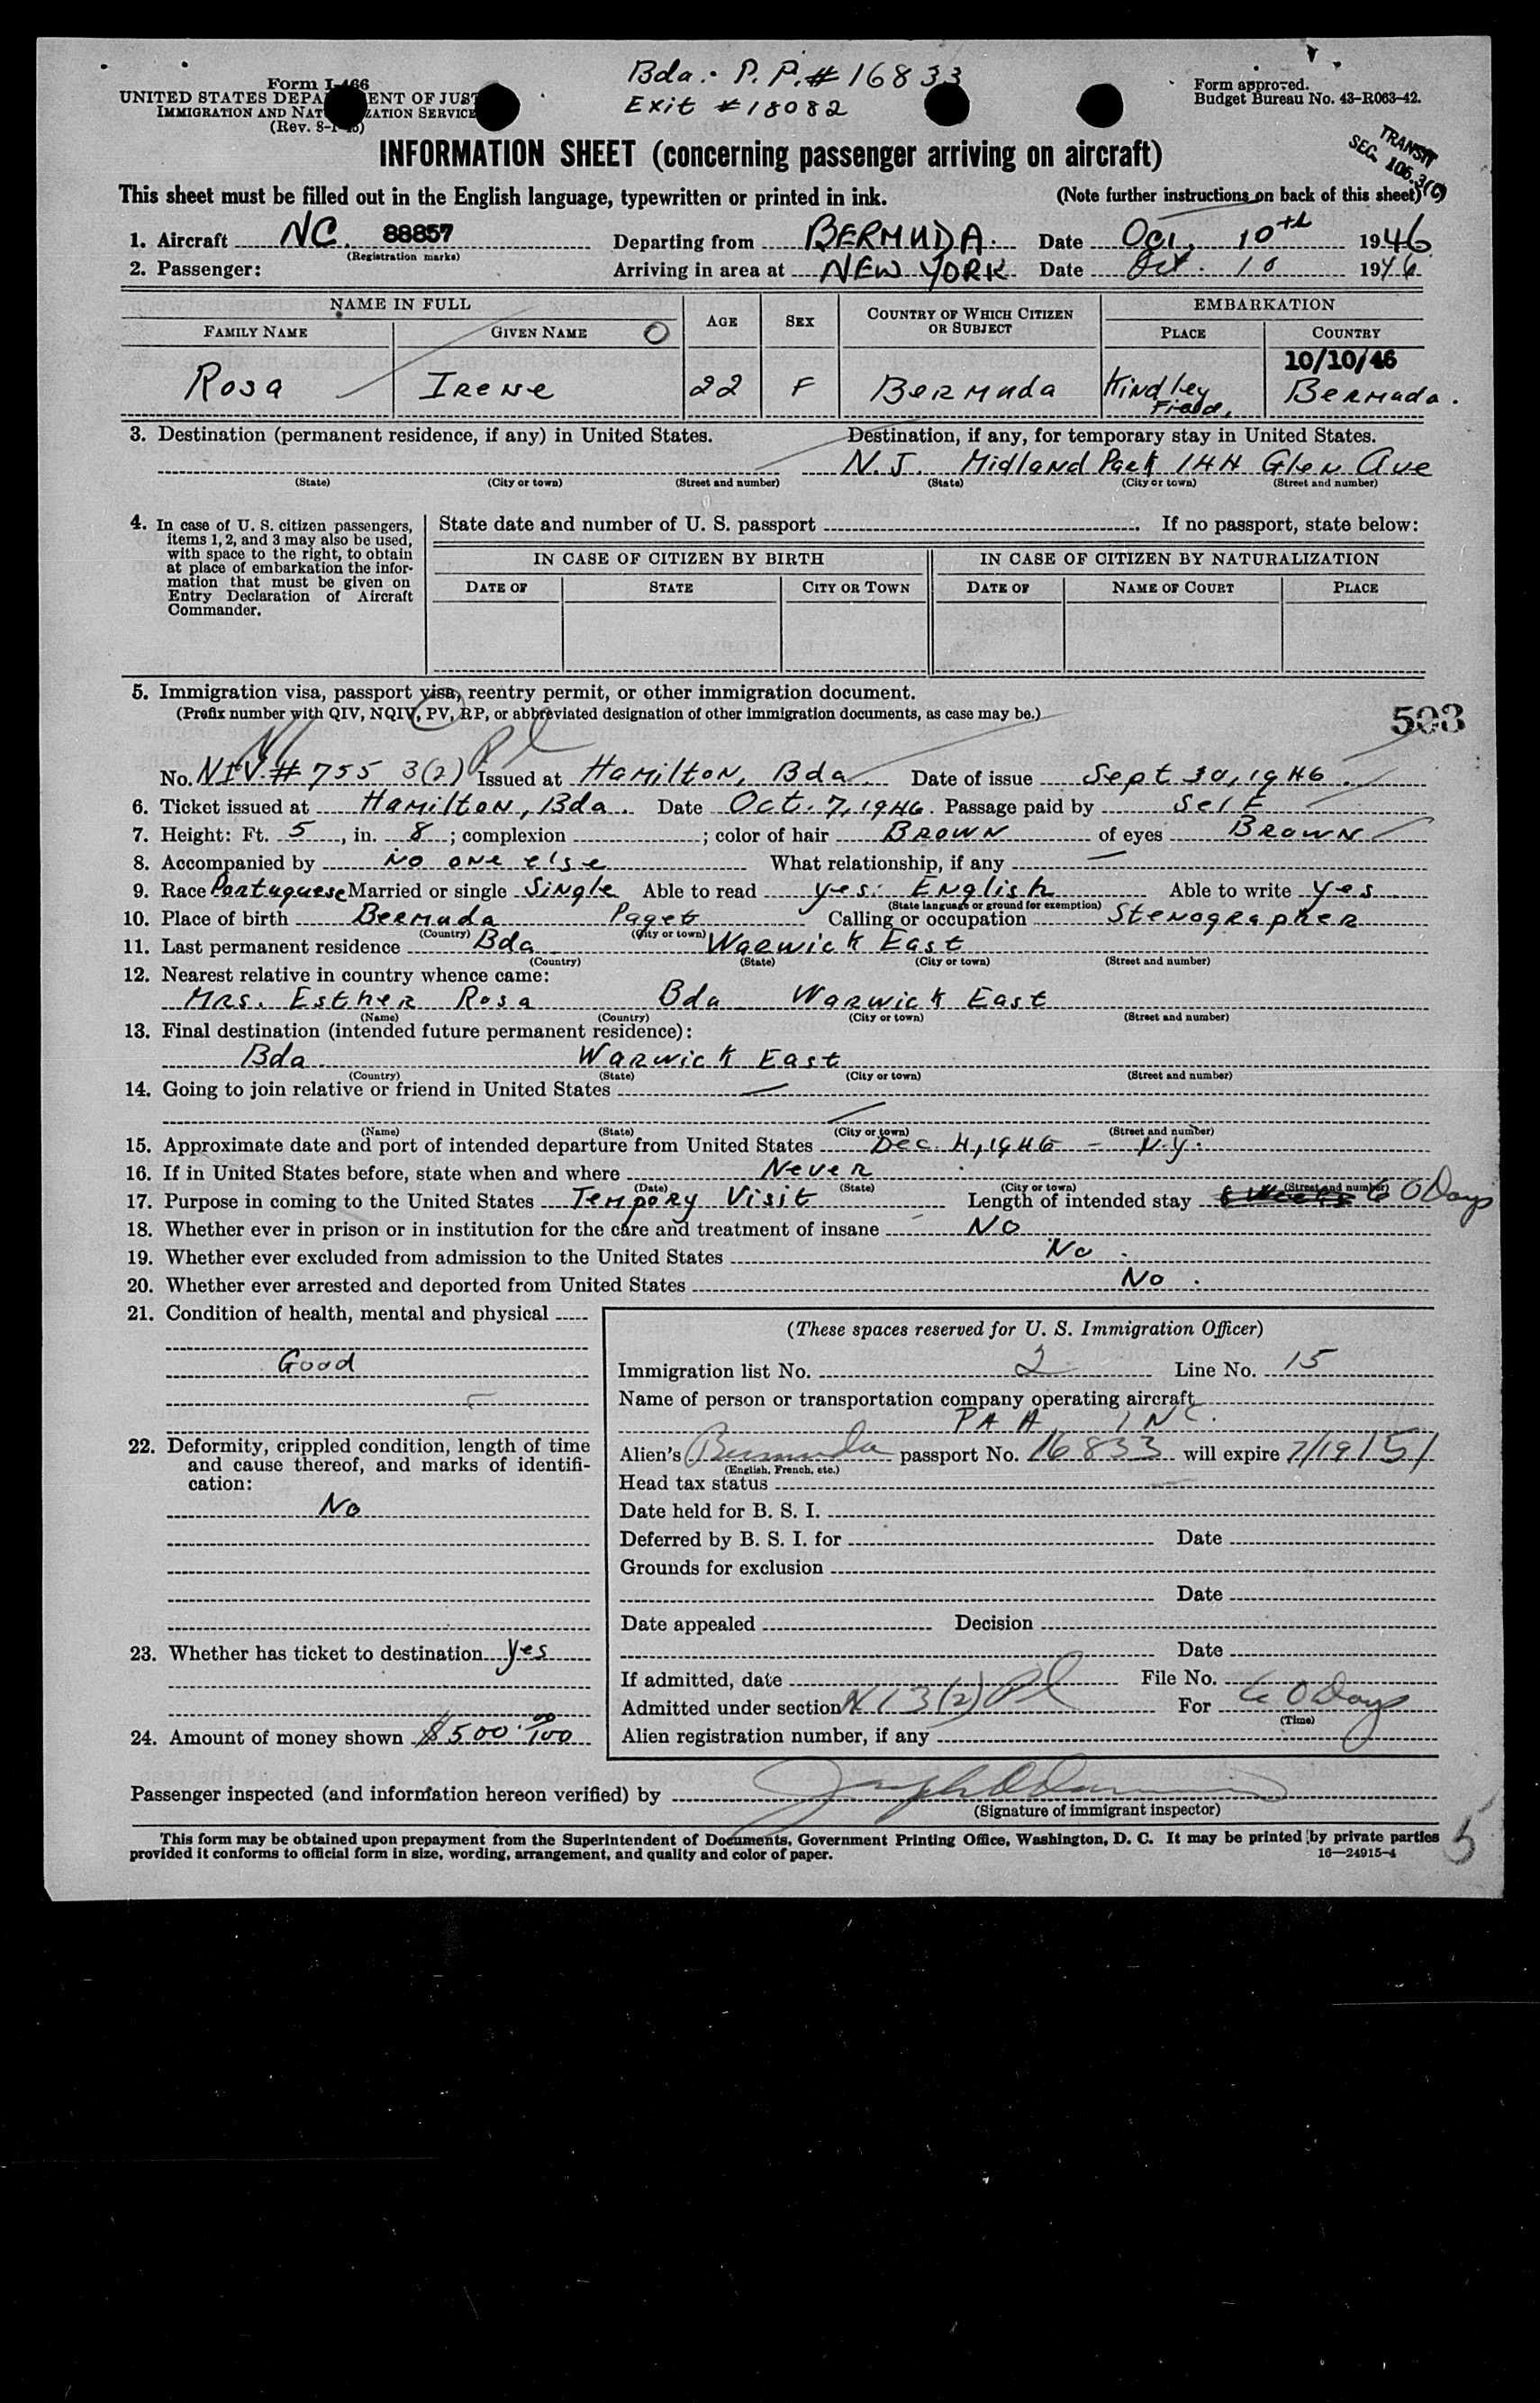 Bda: P. P. # 16833
Exit # 18082
Form I-466
UNITED STATES DEPA ENT OF JUST
IMMIGRATION AND NAT ZATION SERVICE
(Rev. 8-1- )
Form approved.
Budget Bureau No. 43-R063-42.
TRANSIT
SEC. 106.3(C)
INFORMATION SHEET (concerning passenger arriving on aircraft)
This sheet must be filled out in the English language, typewritten or printed in ink. (Note further instructions on back of this sheet)
1. Aircraft NC. 88857 Departing from BERMUDA. Date Oct. 10th 1946
(Registration marks)
2. Passenger: Arriving in area at NEW YORK Date Oct. 10 1946
NAME IN FULL AGE SEX COUNTRY OF WHICH CITIZEN OR SUBJECT EMBARKATION
FAMILY NAME GIVEN NAME PLACE COUNTRY
10/10/46
Rosa Irene 22 F Bermuda Kindley Field, Bermuda.
3. Destination (permanent residence, if any) in United States. Destination, if any, for temporary stay in United States.
N.J. Midland Park 144 Glen Ave
(State) (City or town) (Street and number) (State) (City or town) (Street and number)
4. In case of U. S. citizen passengers, items 1, 2, and 3 may also be used, with space to the right, to obtain at place of embarkation the information that must be given on Entry Declaration of Aircraft Commander.
State date and number of U. S. passport . If no passport, state below:
IN CASE OF CITIZEN BY BIRTH IN CASE OF CITIZEN BY NATURALIZATION
DATE OF STATE CITY OR TOWN DATE OF NAME OF COURT PLACE
5. Immigration visa, passport visa, reentry permit, or other immigration document.
(Prefix number with QIV, NQIV, PV, RP, or abbreviated designation of other immigration documents, as case may be.)
503
No. NIV.# 755 3(2) Issued at Hamilton, Bda. Date of issue Sept 30, 1946.
6. Ticket issued at Hamilton, Bda. Date Oct. 7, 1946. Passage paid by Self
7. Height: Ft. 5, in. 8; complexion ; color of hair Brown of eyes Brown
8. Accompanied by no one else What relationship, if any —
9. Race Portuguese Married or single Single Able to read yes. English Able to write yes
(State language or ground for exemption)
10. Place of birth Bermuda Paget Calling or occupation Stenographer
(Country) (City or town)
11. Last permanent residence Bda Warwick East
(Country) (State) (City or town) (Street and number)
12. Nearest relative in country whence came:
Mrs. Esther Rosa Bda Warwick East
(Name) (Country) (City or town) (Street and number)
13. Final destination (intended future permanent residence):
Bda. Warwick East
(Country) (State) (City or town) (Street and number)
14. Going to join relative or friend in United States —
(Name) (State) (City or town) (Street and number)
15. Approximate date and port of intended departure from United States Dec. 4, 1946 – N.Y.
16. If in United States before, state when and where Never
(Date) (State) (City or town) (Street and number)
17. Purpose in coming to the United States Tempory Visit Length of intended stay 60 Days
18. Whether ever in prison or in institution for the care and treatment of insane No
19. Whether ever excluded from admission to the United States No.
20. Whether ever arrested and deported from United States No.
21. Condition of health, mental and physical
Good
22. Deformity, crippled condition, length of time and cause thereof, and marks of identification:
No
23. Whether has ticket to destination yes
24. Amount of money shown $500.00/100
(These spaces reserved for U. S. Immigration Officer)
Immigration list No. 2 Line No. 15
Name of person or transportation company operating aircraft
PAA INC.
Alien's Bermuda passport No. 16833 will expire 7/19/51
(English, French, etc.)
Head tax status
Date held for B. S. I.
Deferred by B. S. I. for Date
Grounds for exclusion
Date
Date appealed Decision
Date
If admitted, date File No.
Admitted under section 3(2) For 60 Days
(Time)
Alien registration number, if any
Passenger inspected (and information hereon verified) by
(Signature of immigrant inspector)
This form may be obtained upon prepayment from the Superintendent of Documents, Government Printing Office, Washington, D. C. It may be printed by private parties
provided it conforms to official form in size, wording, arrangement, and quality and color of paper. 16—24915-4
5